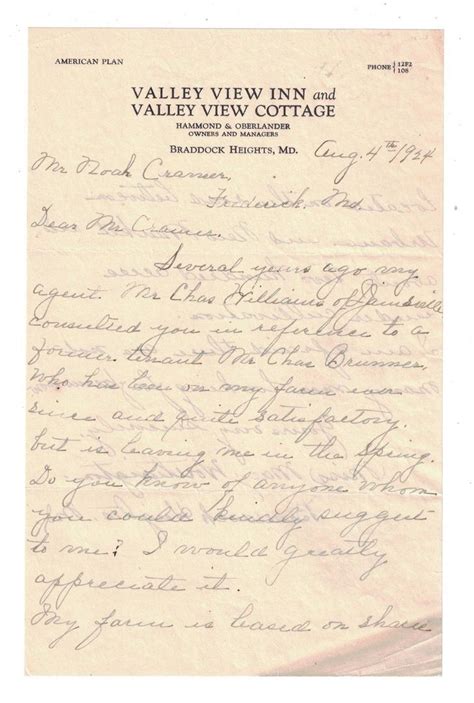 AMERICAN PLAN
PHONE { 12F2
108
VALLEY VIEW INN and
VALLEY VIEW COTTAGE
HAMMOND & OBERLANDER
OWNERS AND MANAGERS
BRADDOCK HEIGHTS, MD.
Aug. 4th 1924
Mr Noah Cramer,
Frederick, Md.
Dear Mr Cramer.
Several years ago my
agent Mr Chas Williams of
consulted you in reference to a
former tenant Mr Chas Brunner,
who has been on my farm ever
since and quite satisfactory.
but is leaving me in the Spring.
Do you know of anyone whom
you could kindly suggest
to me? I would greatly
appreciate it.
My farm is leased on share